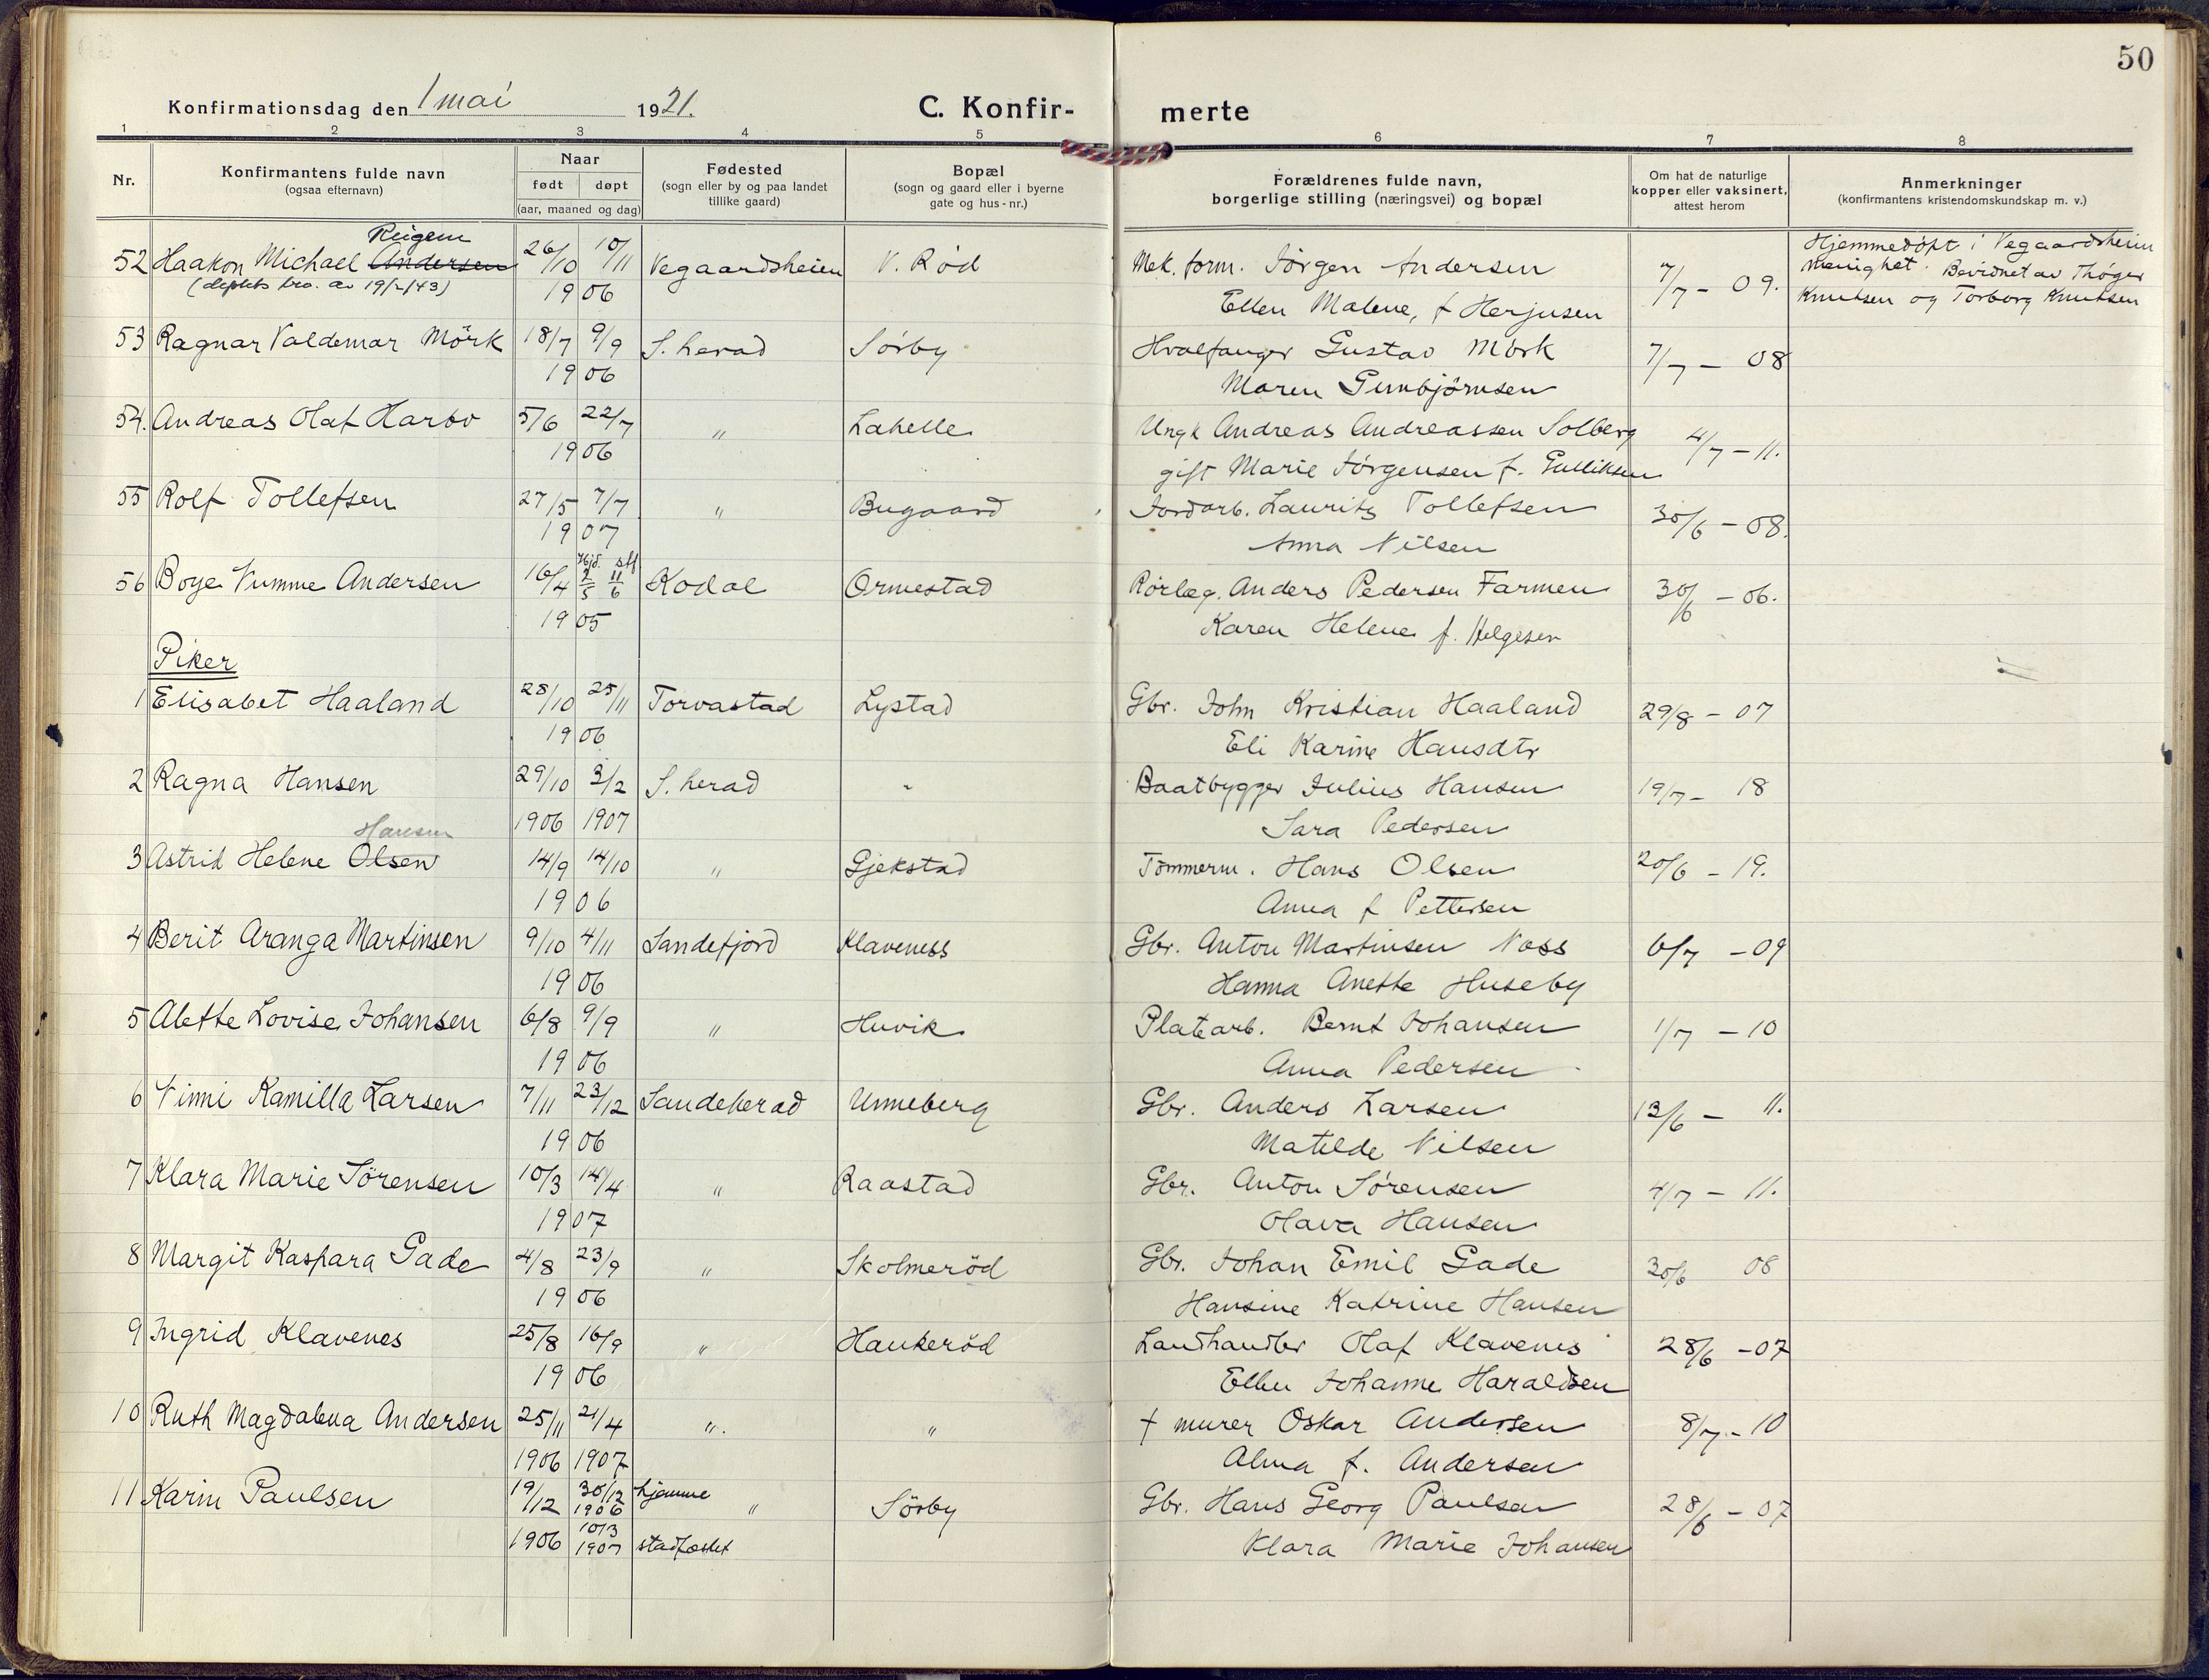 50
Konfirmationsdag den 1 mai 1921.
C. Konfir- merte
1 2 3 4 5 6 7 8
Nr.
Konfirmantens fulde navn
(ogsaa efternavn)
Naar
født døpt
(aar, maaned og dag)
Fødested
(sogn eller by og paa landet
tillike gaard)
Bopæl
(sogn og gaard eller i byerne
gate og hus-nr.)
Forældrenes fulde navn,
borgerlige stilling (næringsvei) og bopæl
Om hat de naturlige
kopper eller vaksinert,
attest herom
Anmerkninger
(konfirmantens kristendomskundskap m. v.)
52 Haakon Michael Andersen 26/10 10/11 Vegaardsheien V. Rød Mek. form. Jörgen Andersen 7/7 - 09. Hjemmedöpt i Vegaardsheien
(deptets bev. av 19/2/43) 1906 Ellen Malene, f Herjusen menighet. Bevidnet av Thöger
Knutsen og Torborg Knutsen
53 Ragnar Valdemar Mörk 18/7 9/9 S. herad Sörby Hvalfanger Gustav Mörk 7/7 - 08
1906 Maren Gunbjörnsen
54. Andreas Olaf Harbo 5/6 22/7 " Lahelle Ungk Andreas Andreassen Solberg 4/7 - 11.
1906 gift Marie Jörgensen f. Gulliksen
55 Rolf Tollefsen 27/5 7/7 " Bugaard Jordarb. Laurits Tollefsen 30/6 - 08.
1907 Anna Nilsen
56 Boye Numme Andersen 16/4 Hjd. 2/5 stf 11/6 Kodal Ormestad Rörlæg. Anders Pedersen Farmen 30/6 - 06.
1905 Karen Helene f. Helgesen
Piker
1 Elisabet Haaland 28/10 25/11 Torvastad Lystad Gbr. John Kristian Haaland 29/8 - 07
1906 Eli Karine Hansdtr
2 Ragna Hansen 29/10 3/2 S. herad " Baatbygger Julius Hansen 19/7 - 18
1906 1907 Sara Pedersen
Hansen
3 Astrid Helene Olsen 14/9 14/10 " Gjekstad Tömmerm. Hans Olsen 20/6 - 19.
1906 Anna f Pettersen
4 Berit Aranga Martinsen 9/10 4/11 Sandefjord Klaveness Gbr. Anton Martinsen Næss 6/7 - 09
1906 Hanna Anette Huseby
5 Alette Lovise Johansen 6/8 9/9 " Huvik Platearb. Bernt Johansen 1/7 - 10
1906 Anna Pedersen
6 Vinni Kamilla Larsen 7/11 23/12 Sandeherad Unneberg Gbr. Anders Larsen 13/6 - 11.
1906 Matilde Nilsen
7 Klara Marie Sörensen 10/3 14/4 " Raastad Gbr. Anton Sörensen 4/7 - 11.
1907 Olava Hansen
8 Margit Kaspara Gade 4/8 23/9 " Skolmeröd Gbr. Johan Emil Gade 30/6 08
1906 Hansine Katrine Hansen
9 Ingrid Klavenes 25/8 16/9 " Haukeröd Landhandler Olaf Klavenes 28/6 - 07
1906 Ellen Johanne Haraldsen
10 Ruth Magdalena Andersen 25/11 21/4 " " † murer Oskar Andersen 8/7 - 10
1906 1907 Alma f. Andersen
11 Karin Paulsen 19/12 30/12 1906 hjemme " Sörby Gbr. Hans Georg Paulsen 28/6 - 07
1906 10/3 1907 stadfæstet Klara Marie Johansen